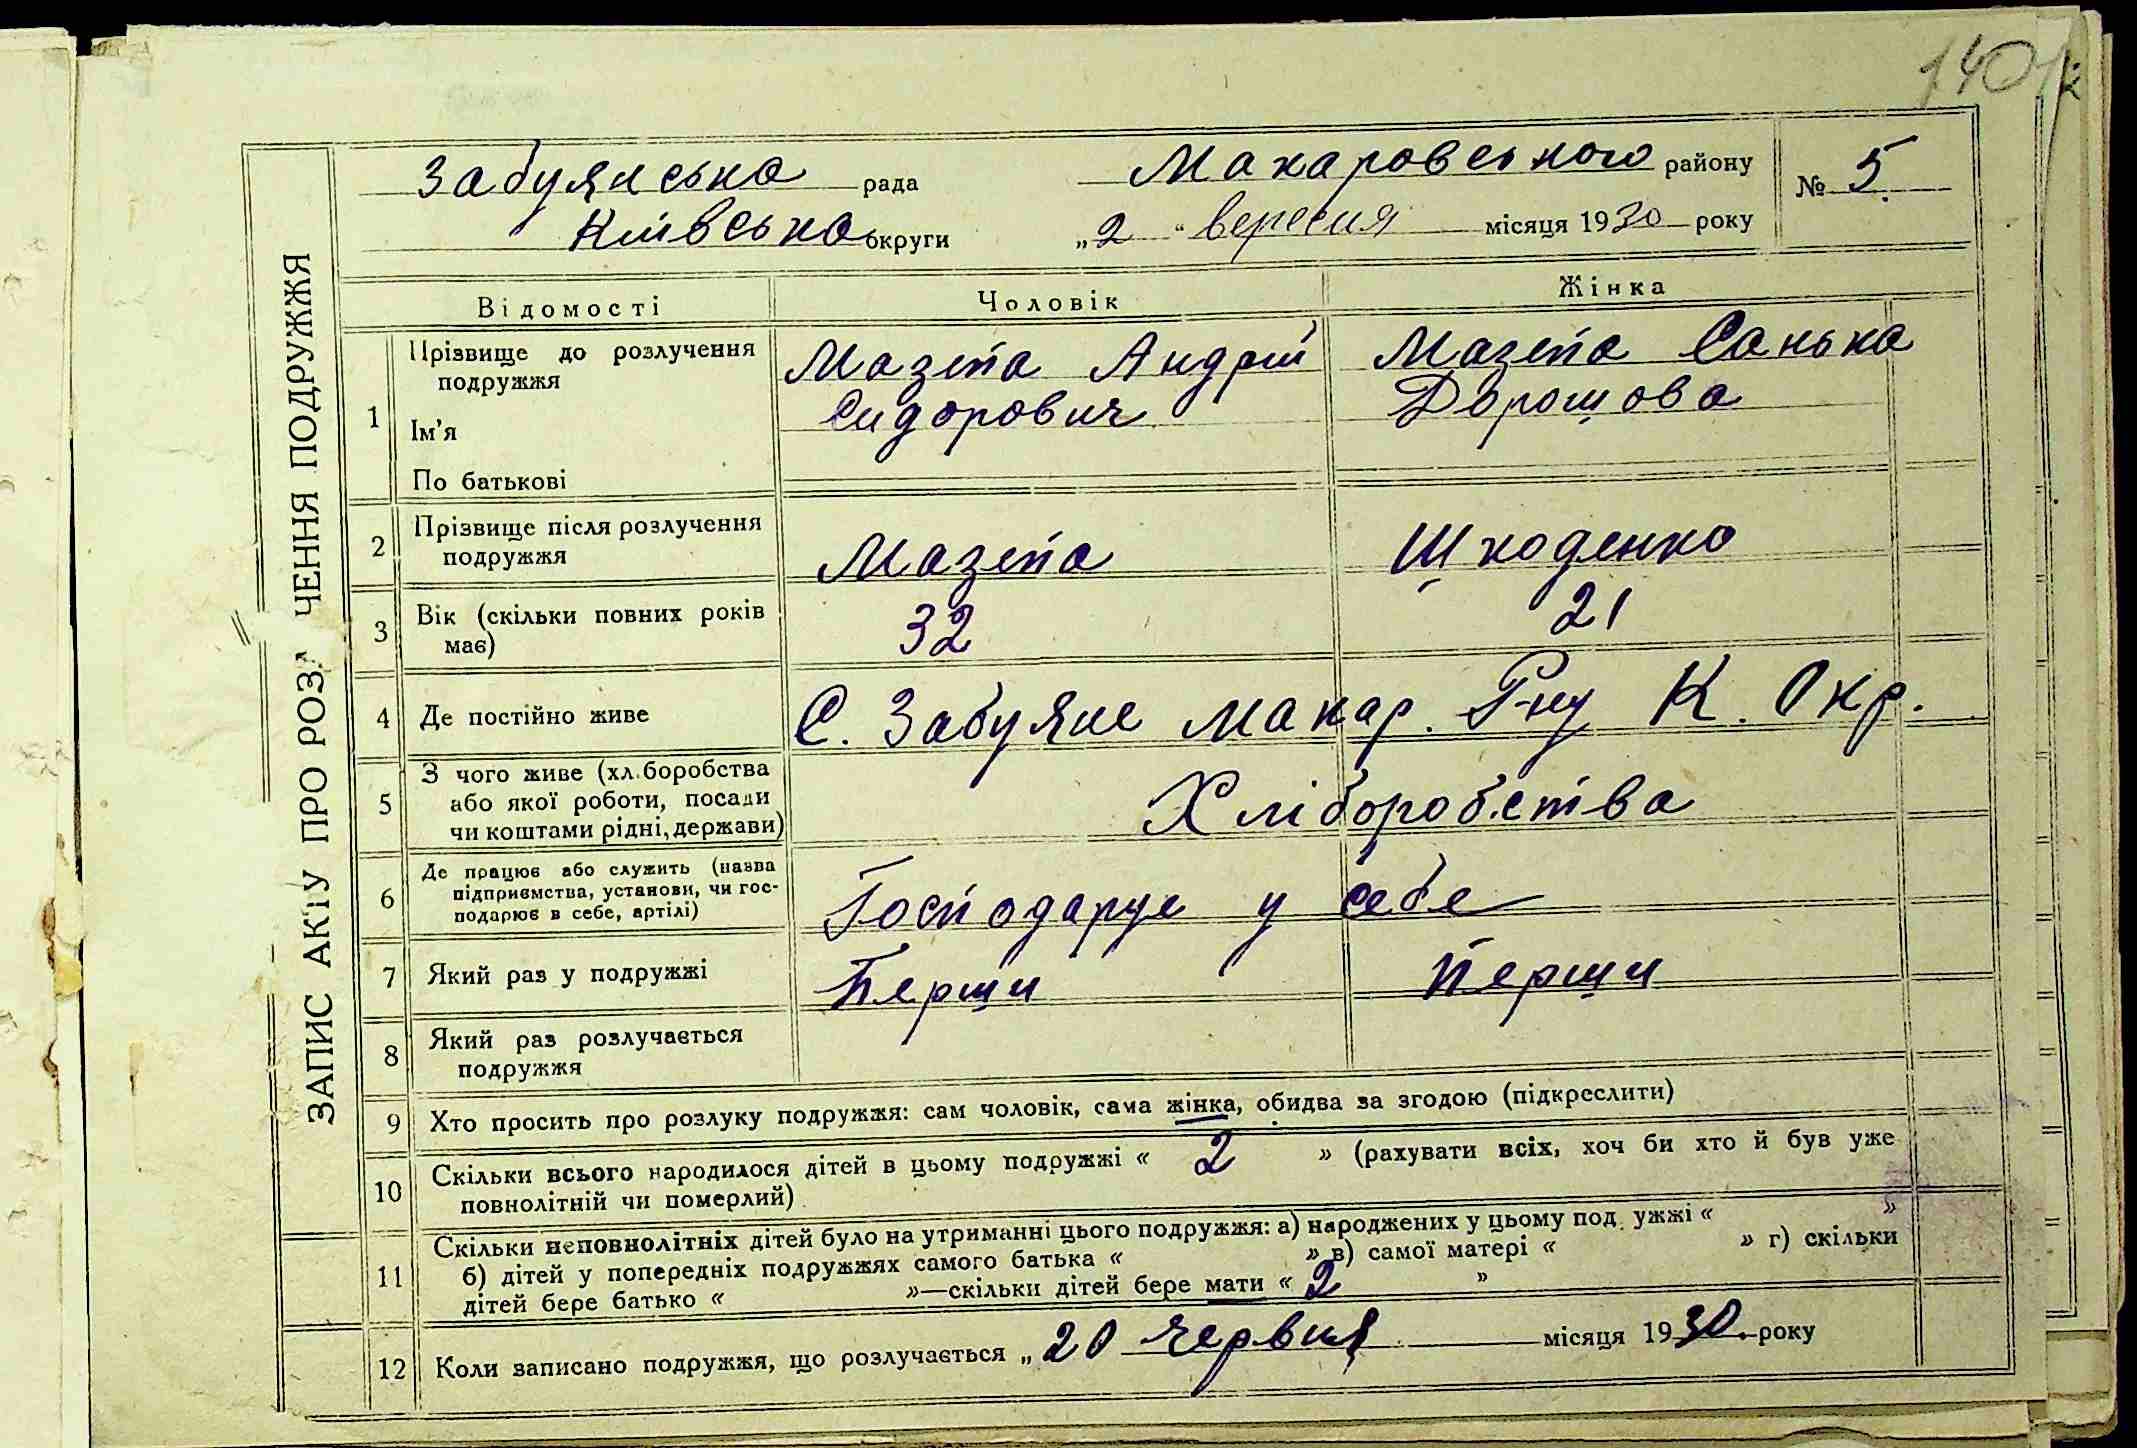 140
Забуянська рада Макаровського району № 5
Київська округи „2“ вересня місяця 1930 року
ЗАПИС АКТУ ПРО РОЗЛ ЧЕННЯ ПОДРУЖЖЯ
Відомості Чоловік Жінка
1 Прізвище до розлучення Мазепа Андрій Мазепа Санька
подружжя Сидорович Дорошова
Ім'я
По батькові
2 Прізвище після розлучення
подружжя Мазепа Шкоденко
3 Вік (скільки повних років
має) 32 21
4 Де постійно живе С. Забуяне Макар. Р-ну К. Окр.
5 З чого живе (хл.боробства
або якої роботи, посади Хліборобства
чи коштами рідні, держави)
6 Де працює або служить (назва
підприємства, установи, чи гос- Господарує у себе
подарює в себе, артілі)
7 Який раз у подружжі Перши Перши
8 Який раз розлучається
подружжя
9 Хто просить про розлуку подружжя: сам чоловік, сама жінка, обидва за згодою (підкреслити)
10 Скільки всього народилося дітей в цьому подружжі « 2 » (рахувати всіх, хоч би хто й був уже
повнолітній чи померлий)
11 Скільки неповнолітніх дітей було на утриманні цього подружжя: а) народжених у цьому под ужжі « »
б) дітей у попередніх подружжях самого батька « » в) самої матері « » г) скільки
дітей бере батько « »—скільки дітей бере мати « 2 »
12 Коли записано подружжя, що розлучається „20 червня місяця 1930. року